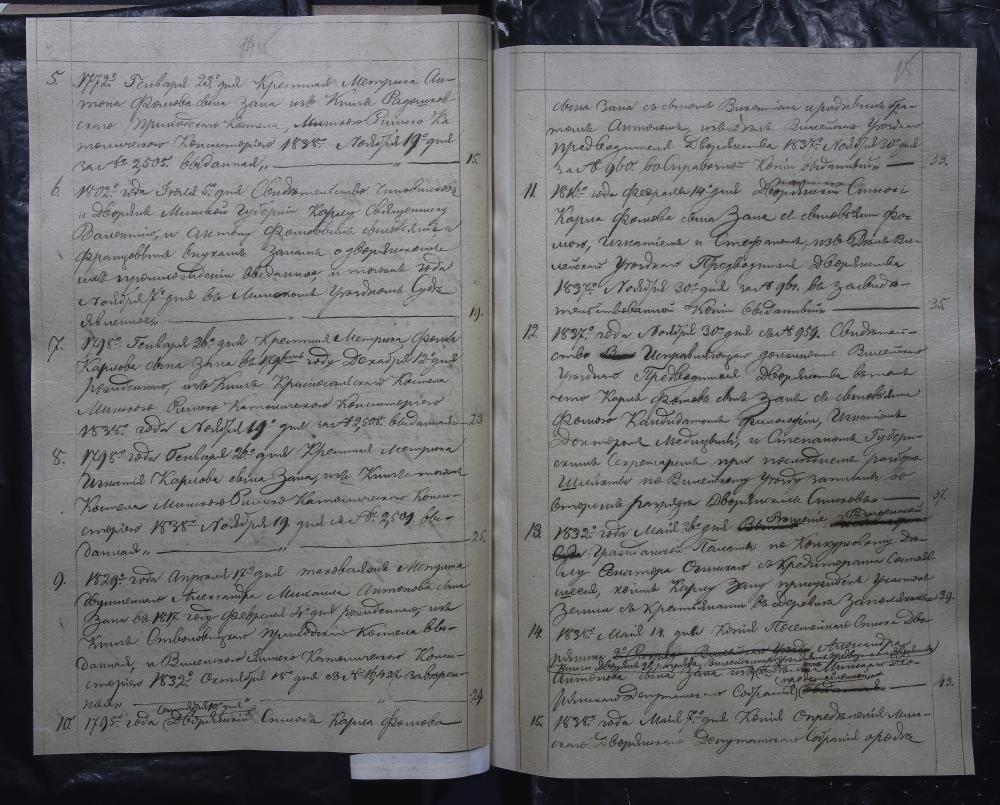 14
5. 1772го Генваря 23го дня Крестная Метрика Ан-
тона Фомова сына Зана изъ Книгъ Радошков-
скаго Приходскаго Костела, Минскою Римско Ка
толическою Консисторіею 1838го Ноября 19го дня
за № 2,505. выданная „ — „ — 15.
6. 1802го года Іюля 5го дня Свидѣтельство Чиновниковъ
и Дворянъ Минской Губерніи Карлу Священнику
Валентію, и Антону Фомовымъ сыновьямъ а
Францовымъ внукамъ Занамъ о дворянскомъ
ихъ происхожденіи выданное, и тогожъ года
Ноября 7го дня въ Минскомъ Уѣздномъ Судѣ
явленное „ — „ — 19.
7. 1798го Генваря 26го дня Крестная Метрика Фомы
Карлова сына Зана въ году Декабря 12го дня
рожденнаго, изъ Книгъ Костела
Минскою Римско Католическою Консисторіею
1838го года Ноября 19го дня, за № 2,508. выданная — 23.
8. 1798го года Генваря 26го дня Крестная Метрика
Игнатія Карлова сына Зана, изъ Книгъ тогожъ
Костела Минскою Римско Католическою Конси-
сторіею 1838го Ноября 19. дня за №. 2,509. вы-
данная „ — „ — 25.
9. 1829го года Апреля 17го дня таковаяжъ Метрика
двуименнаго Александра Михаила Антонова сына
Зана въ 1817. году Февраля дня рожденнаго, изъ
Книгъ Стволовицкаго Приходскаго Костела вы-
данная, и Виленскою Римско Католическою Конси-
сторіею 1832го Октября 18го дня за № заверен-
ная „ — „ — 29.
10. 1795го года Сентября 10го дня Дворянскій Списокъ Карла Фомова
15
сына Зана съ сыномъ Викентіемъ и роднымъ бра-
томъ Антономъ, изъ Дѣлъ Вилейскаго Уѣзднаго
Предводителя Дворянства 1837го Ноября 30го дня
за № 960. во справочной Копіи выданный „ — 33.
11. 1816го года Февраля 14го дня Дворянскій Списокъ
Карла Фомова сына Зана съ сыновьями Фо-
мою, Игнатіемъ и Стефаномъ, изъ Дѣлъ Ви-
лейскаго Уѣзднаго Предводителя Дворянства
1837го Ноября 30го дня за № 961. въ засвидѣ-
тельствованной Копіи выданный „ — 35.
12. 1837го года Ноября 30го дня за № 959. Свидѣтель-
ство Исправляющаго должность Вилейскаго
Уѣзднаго Предводителя Дворянства въ томъ
что Карлъ Фомовъ сынъ Занъ съ сыновьями
Фомою Кандидатомъ Философіи, Игнатіемъ
Докторомъ Медицины, и Степаномъ Губерн-
скимъ Секретаремъ при послѣднемъ разборѣ
Шляхты по Вилейскому Уѣзду записанъ во
вторый разрядъ Дворянскихъ Списковъ — 37.
13. 1832го года Маія 26го дня Рѣшеніе
Гражданской Палаты по Конкурсовому Дѣ-
лу Сенатора Огинскаго съ Кредиторами Состояв-
шееся, коимъ Карлу Зану присужденъ участокъ
Земли съ Крестьянами въ деревнѣ — 39.
14. 1838го Маія 14. дня Копія Посемейнаго Списка Дво-
рянина Александра
Антонова сына Зана изъ Минскаго Дво-
рянскаго Депутатскаго Собранія — 43.
15. 1838го года Маія 7го дня Копія Опредѣленія Мин-
скаго Дворянскаго Депутатскаго Собранія о родѣ